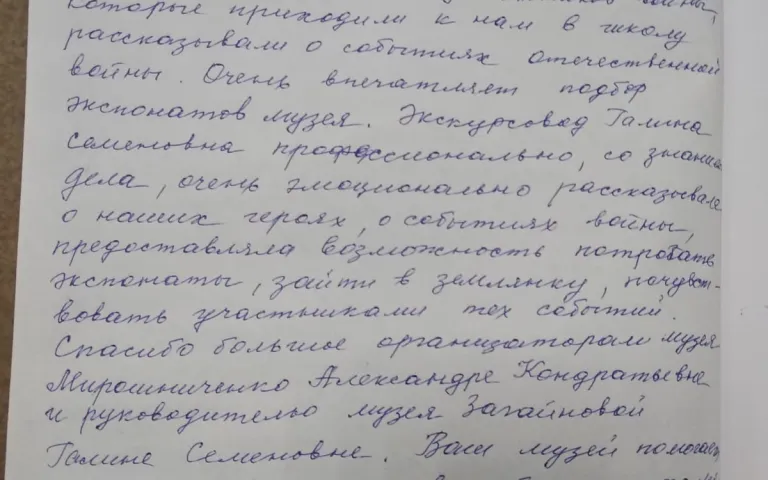 которые приходили к нам в школу
рассказывали о событиях отечественной
войны. Очень впечатляет подбор
экспонатов музея. Экскурсовод Галина
Семеновна профессионально, со знанием
дела, очень эмоционально рассказывала
о наших героях, о событиях войны,
предоставляла возможность потрогать
экспонаты, зайти в землянку, почувст-
вовать участниками тех событий.
Спасибо большое организаторам музея
Мирошниченко Александре Кондратьевне
и руководителю музея Загайновой
Галине Семеновне. Ваш музей помогает